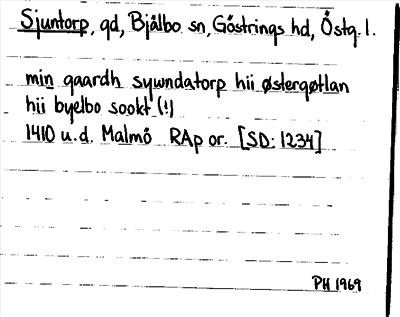 Sjuntorp, gd, Bjälbo sn, Göstrings hd, Östg. l.
min gaardh sywndatorp hii østergøtlan
hii byelbo sookt (!)
1410 u.d. Malmö RAp or. [SD: 1234]
PH 1969